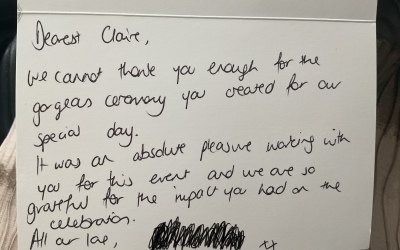 Dearest Claire,
We cannot thank you enough for the
gorgeous ceremony you created for our
special day.
It was an absolute pleasure working with
you for this event and we are so
grateful for the impact you had on the
celebration.
All our love, xx